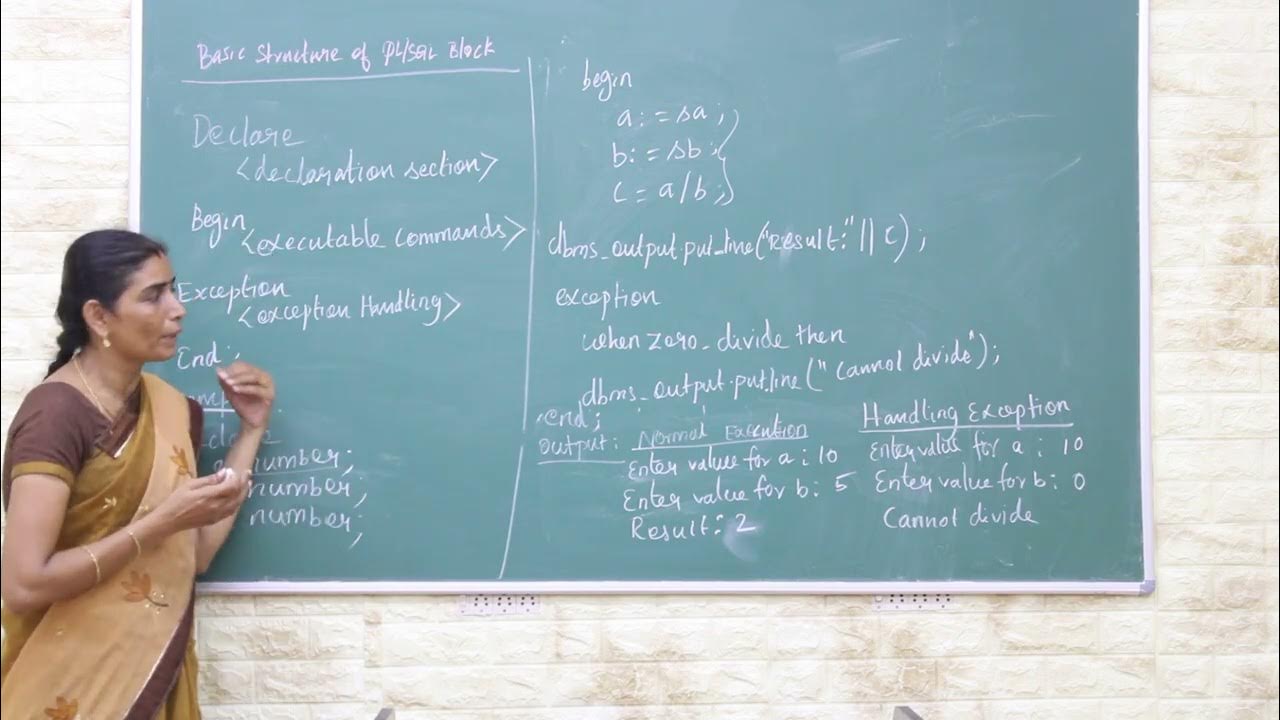 Basic Structure of PL/SQL Block
Declare
<declaration section>
Begin
<executable commands>
Exception
<exception Handling>
End;
number;
number;
number;
begin
a:=&a;
b:=&b;
c=a/b;
dbms_output.put_line("Result:"||c);
exception
when zero_divide then
dbms_output.put.line("Cannot divide");
end;
output: Normal Execution
Enter value for a: 10
Enter value for b: 5
Result: 2
Handling Exception
Enter value for a: 10
Enter value for b: 0
Cannot divide